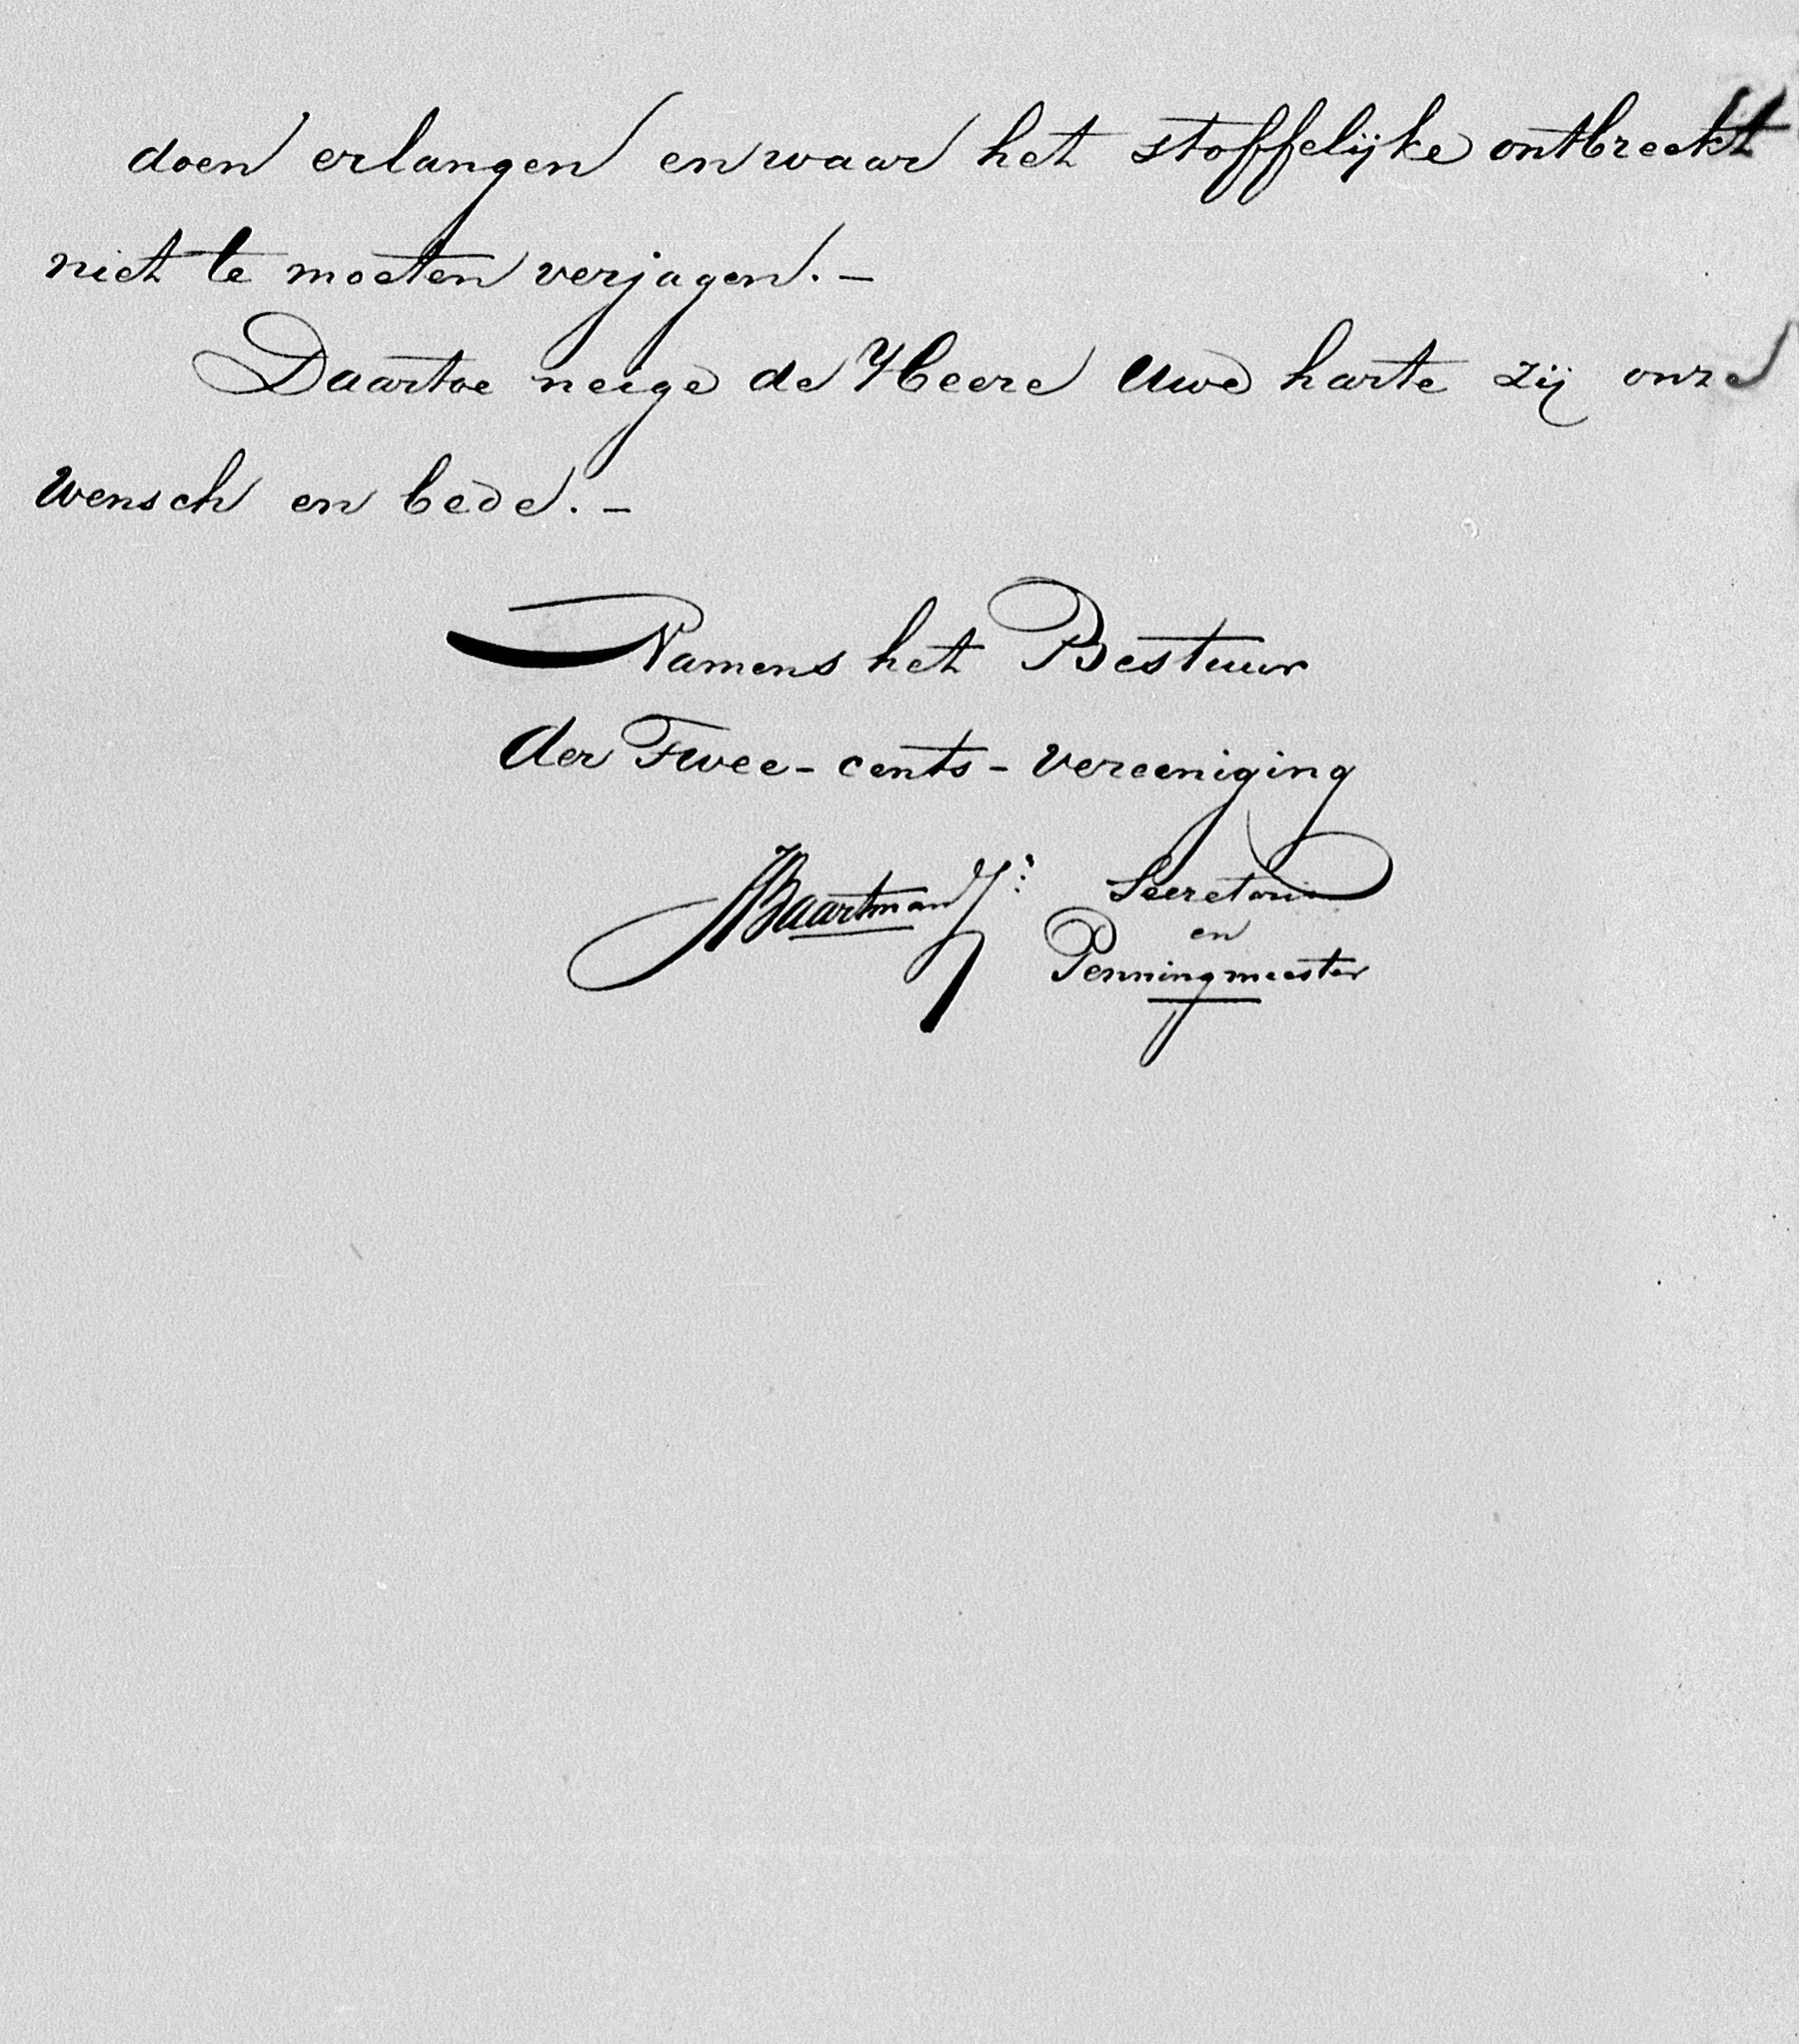 doen erlangen en waar het stoffelijke ontbreekt
niet te moeten verjagen. —
Daartoe neige de Heere Uwe harte zij onze
wensch en bede. —
Namens het Bestuur
der Twee-cents-vereeniging
Baartman Jr: Secretaris
en
Penningmeester